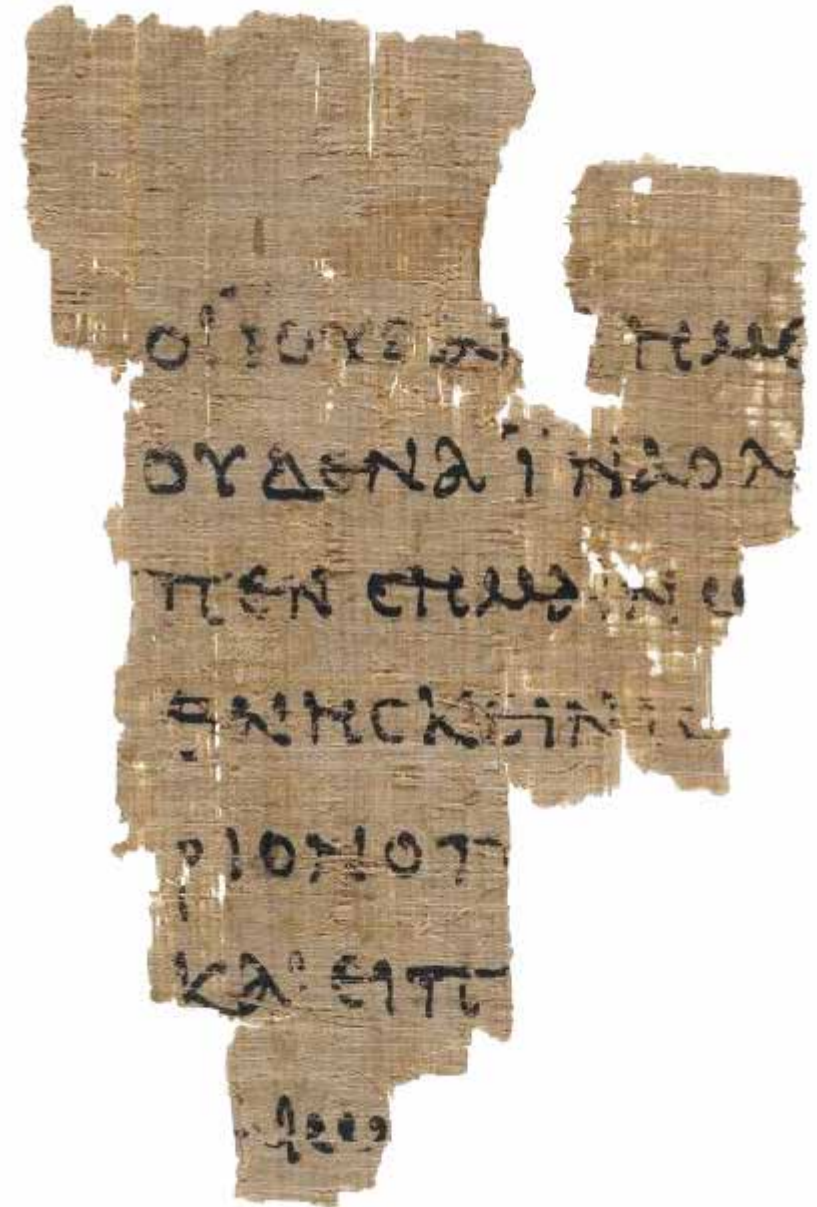 ΟΙΙΟΥΔΑΙ ΗΜΕ
ΟΥΔΕΝΑΪΝΑΟΛ
ΠΕΝϹΗΜΑΙΝΩ
ΘΝΗϹΚΕΙΝΙϹ
ΡΙΟΝΟΠ
ΚΑΙΕΙΠ